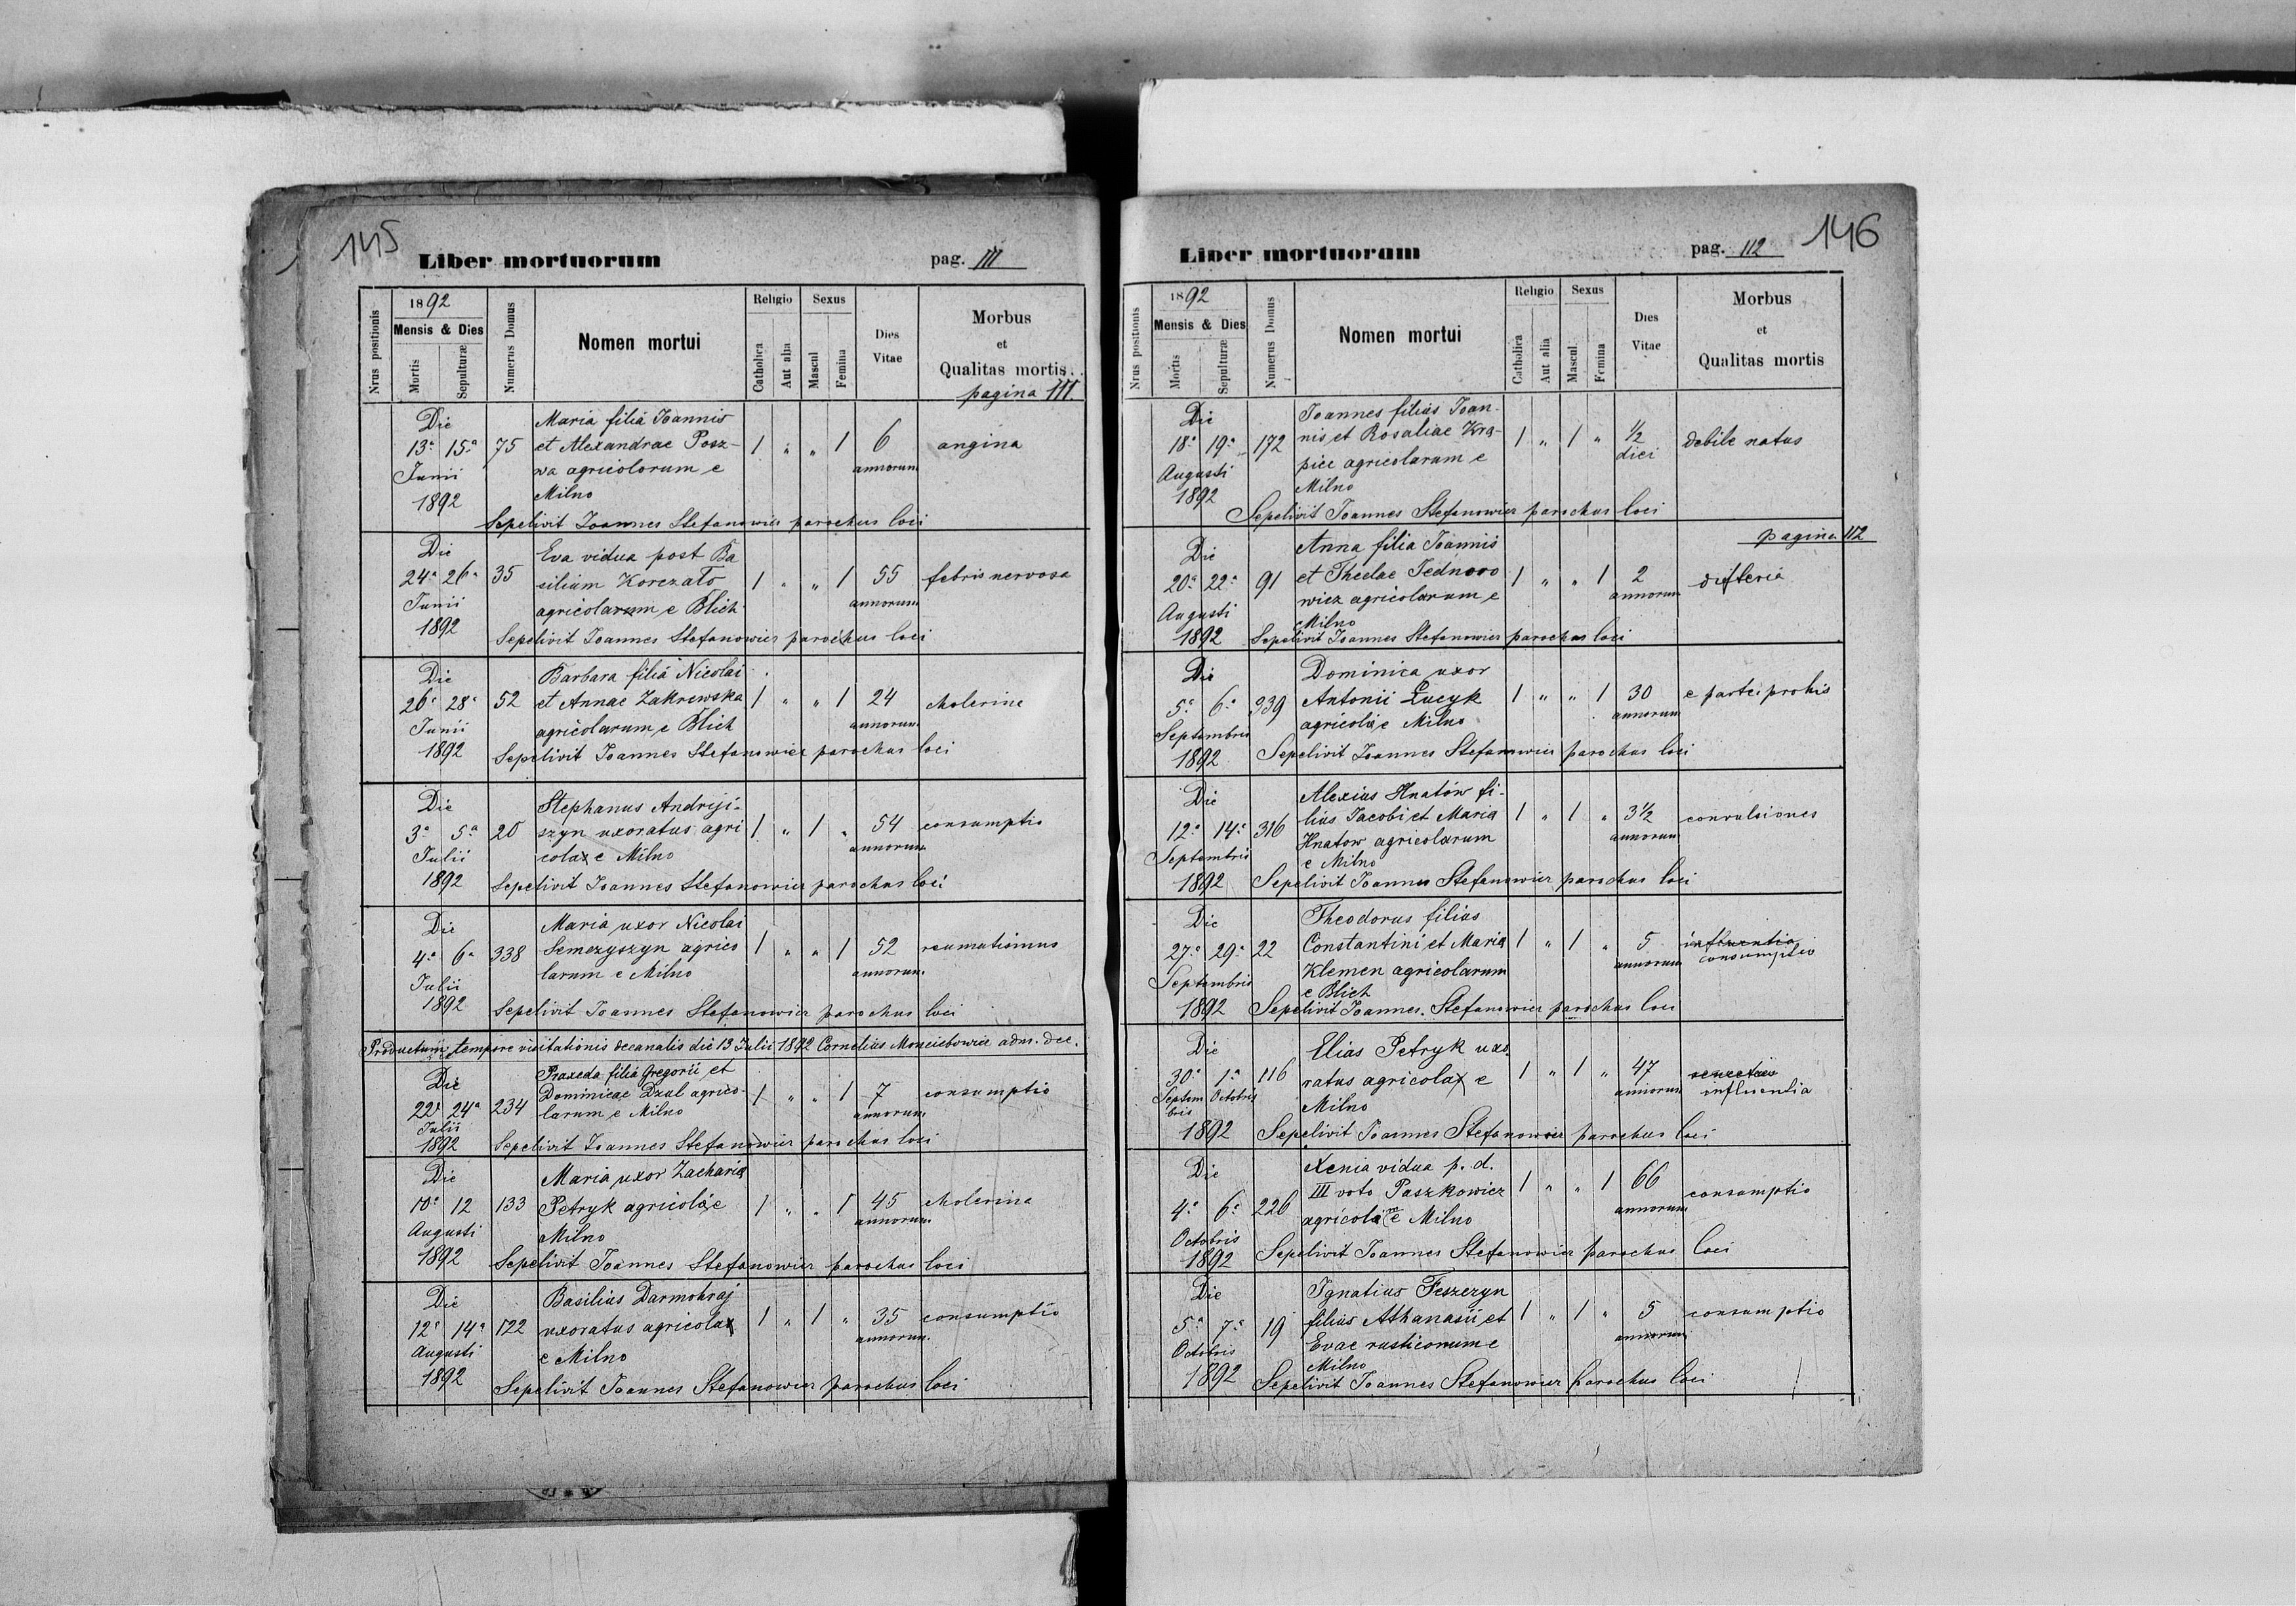 145
Liber mortuorum
pag. 111
Nrus positionis
1892
Mensis & Dies
Mortis
Sepulturæ
Numerus Domus
Nomen mortui
Religio
Catholica
Aut alia
Sexus
Mascul
Femina
Dies
Vitae
Morbus
et
Qualitas mortis
pagina 111
Die
Maria filia Joannis
13ª 15ª 75 et Alexandrae Posz- 1 " " 1 6 angina
Junii wa agricolarum e annorum
Milno
1892
Sepelivit Joannes Stefanowicz parochus loci
Die
Eva vidua post Ba
24ª 26ª 35 silium Korczało 1 " " 1 55 febris nervosa
Junii agricolarum e Blich annorum
1892
Sepelivit Joannes Stefanowicz parochus loci
Die
Barbara filia Nicolai
26ª 28ª 52 et Annae Zakrewska 1 " " 1 24 cholerine
Junii agricolarum e Blich annorum
1892 Sepelivit Joannes Stefanowicz parochus loci
Die
Stephanus Andriji-
3ª 5ª 20 szyn uxoratus agri 1 " 1 " 54 consumptio
Julii colae e Milno annorum
1892 Sepelivit Joannes Stefanowicz parochus loci
Die
Maria uxor Nicolai
4ª 6ª 338 Semczyszyn agrico 1 " " 1 52 reumatismus
Julii larum e Milno annorum
1892 Sepelivit Joannes Stefanowicz parochus loci
Productum tempore visitationis decanalis die 13 Julii 1892 Cornelius adm. dec.
Die
Praxeda filia Gregorii et
Dominicae Dzul agrico-
22ª 24ª 234 larum e Milno 1 " " 1 7 consumptio
Julii annorum
1892 Sepelivit Joannes Stefanowicz parochus loci
Die
Maria uxor Zachariae
10ª 12 133 Petryk agricolae e 1 " " 1 45 cholerina
Augusti Milno annorum
1892 Sepelivit Joannes Stefanowicz parochus loci
Die
Basilius Darmohraj
12ª 14ª 122 uxoratus agricola 1 " 1 " 35 consumptio
Augusti e Milno annorum
1892 Sepelivit Joannes Stefanowicz parochus loci
146
Liber mortuorum
pag. 112
Nrus positionis
1892
Mensis & Dies
Mortis
Sepulturæ
Numerus Domus
Nomen mortui
Religio
Catholica
Aut alia
Sexus
Mascul.
Femina
Dies
Vitae
Morbus
et
Qualitas mortis
Die
Joannes filius Joan-
18ª 19ª 172 nis et Rosaliae Kra- 1 " 1 " ½ debile natus
Augusti pice agricolarum e diei
1892 Milno
Sepelivit Joannes Stefanowicz parochus loci
pagina 112
Die
Anna filia Joannis
20ª 22ª 91 et Theclae Jednoro 1 " " 1 2 difteria
Augusti wicz agricolarum e annorum
Milno
1892 Sepelivit Joannes Stefanowicz parochus loci
Die
Dominica uxor
5ª 6ª 339 Antonii Łucyk 1 " " 1 30 e partei prohis
Septembris agricolae e Milno annorum
1892 Sepelivit Joannes Stefanowicz parochus loci
Die
Alexius Hnatów fi-
12ª 14ª 316 lius Jacobi et Maria 1 " 1 " 3½ convulsiones
Septembris Hnatow agricolarum annorum
e Milno
1892 Sepelivit Joannes Stefanowicz parochus loci
Die
Theodorus filius
27ª 29ª 22 Constantini et Maria 1 " 1 " 5 influentia
Septembris Klemen agricolarum annorum consumptio
e Blich
1892 Sepelivit Joannes Stefanowicz parochus loci
Die
Elias Petryk uxo
30ª 1ª 116 ratus agricola e 1 " 1 " 47
Septembris Octobris Milno annorum influentia
1892 Sepelivit Joannes Stefanowicz parochus loci
Die
Xenia vidua p. d.
4ª 6ª 226 III voto Paszkowicz 1 " " 1 66 consumptio
Octobris agricolam e Milno annorum
1892 Sepelivit Joannes Stefanowicz parochus loci
Die
Ignatius Feszczyn
5ª 7ª 19 filius Athanasii et 1 " 1 " 5 consumptio
Octobris Evae rusticorum e annorum
Milno
1892 Sepelivit Joannes Stefanowicz parochus loci